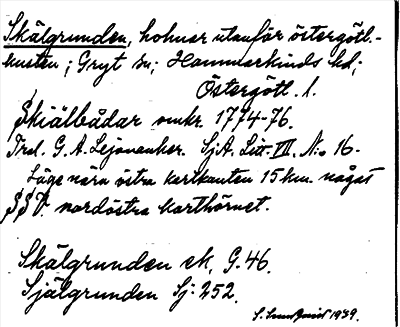 Skälgrunden, holmar utanför östergötl.-
kusten; Gryt sn; Hammarkinds hd;
Östergötl. l.
Skiälbådar omkr. 1774-76.
Trol. G. A. Lejonanker. SjA. Litt. VII, No 16-
Läge nära östra kartkanten 15 km. något
SSV nordöstra karthörnet.
Skälgrunden ek. G. 46.
Själgrunden Sj: 252.
1939.